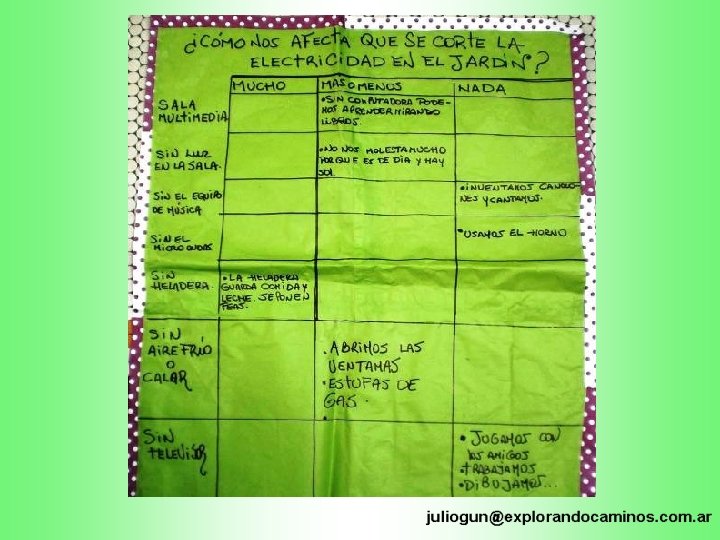 ¿CÓMO NOS AFECTA QUE SE CORTE LA
ELECTRICIDAD EN EL JARDIN?
MUCHO
MAS O MENOS
NADA
SALA
MULTIMEDIA
•SIN COMPUTADORA PODE-
MOS APRENDER MIRANDO
LIBROS.
SIN LUZ
EN LA SALA.
•NO NOS MOLESTA MUCHO
PORQUE ES DE DIA Y HAY
SOL
SIN EL EQUIPO
DE MÚSICA
•INVENTAMOS CANCIO-
NES Y CANTAMOS.
SIN EL
MICROONDAS
•USAMOS EL HORNO
SIN
HELADERA.
•LA HELADERA
GUARDA COMIDA Y
LECHE. SE PONEN
FEAS.
SIN
AIRE FRIO
O
CALOR
.ABRIMOS LAS
VENTANAS
•ESTUFAS DE
GAS.
SIN
TELEVISOR
• JUGAMOS CON
LOS AMIGOS
•TRABAJAMOS
•DIBUJAMOS...
juliogun@explorandocaminos.com.ar